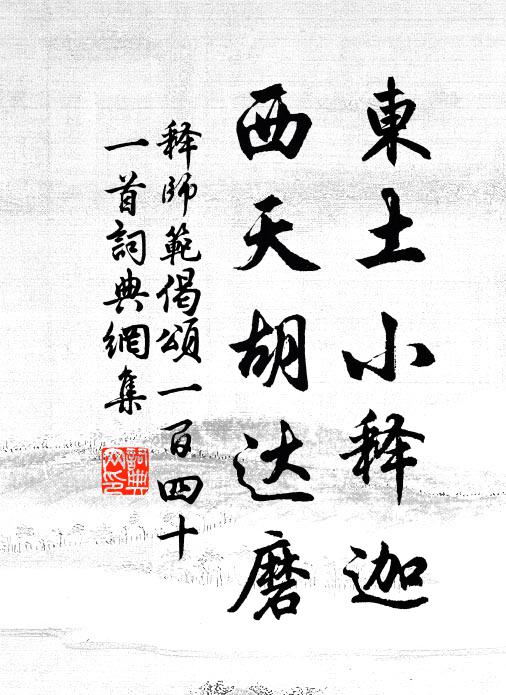 東土小释迦
西天胡达磨
释師範偈頌一百四十
一首詞典網集